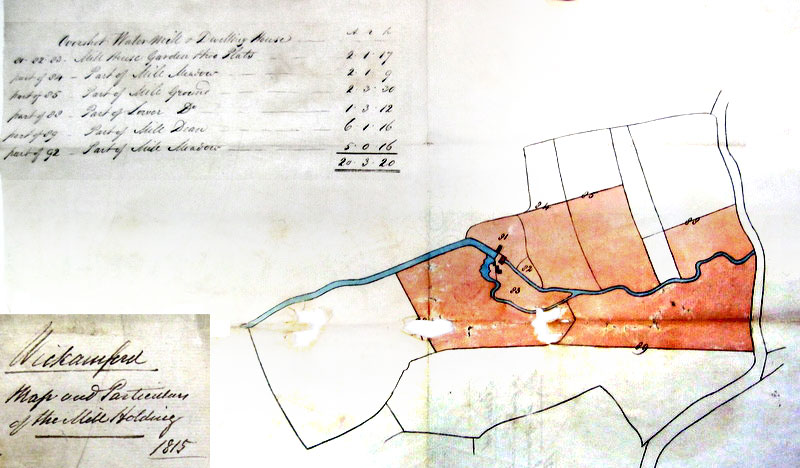 Overshot Water Mill & Dwelling House
A R P
81 · 82 · 83 - Mill House Garden & two Plats 2 · 1 · 17
part of 84 - Part of Mill Meadow 2 · 1 · 9
part of 85 - Part of Mill Ground 2 · 3 · 30
part of 88 - Part of Lower Do 1 · 3 · 12
part of 89 - Part of Mill Dean 6 · 1 · 16
part of 92 - Part of Mill Meadow 5 · 0 · 16
20 · 3 · 20
84
85
88
81
82
83
89
Wickamford
Map and Particulars
of the Mill Holding
1815